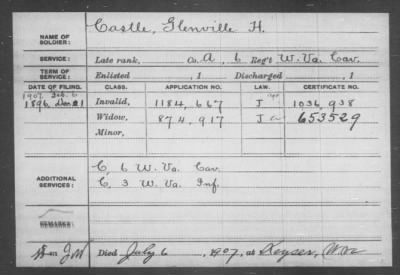 NAME OF SOLDIER: Castle, Glenville H.
SERVICE: Late rank, Co. A, 6 Reg't W. Va. Cav.
TERM OF SERVICE: Enlisted , 1 Discharged , 1
DATE OF FILING. CLASS. APPLICATION NO. LAW. CERTIFICATE NO.
1896 Dec 21 Invalid, 1184,667 J 1036,938
Widow, 874,917 J 653529
Minor,
ADDITIONAL SERVICES: C, 6 W. Va. Cav.
C, 3 W. Va. Inf.
REMARKS:
Died July 6, 1907, at Keyser, W Va